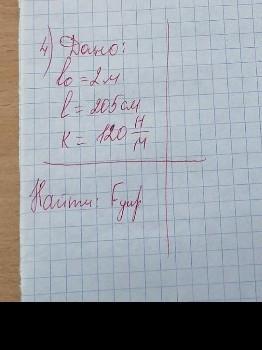 4) Дано:
l₀ = 2 м
l = 205 см
к = 120 Н/м
Найти: Fупр